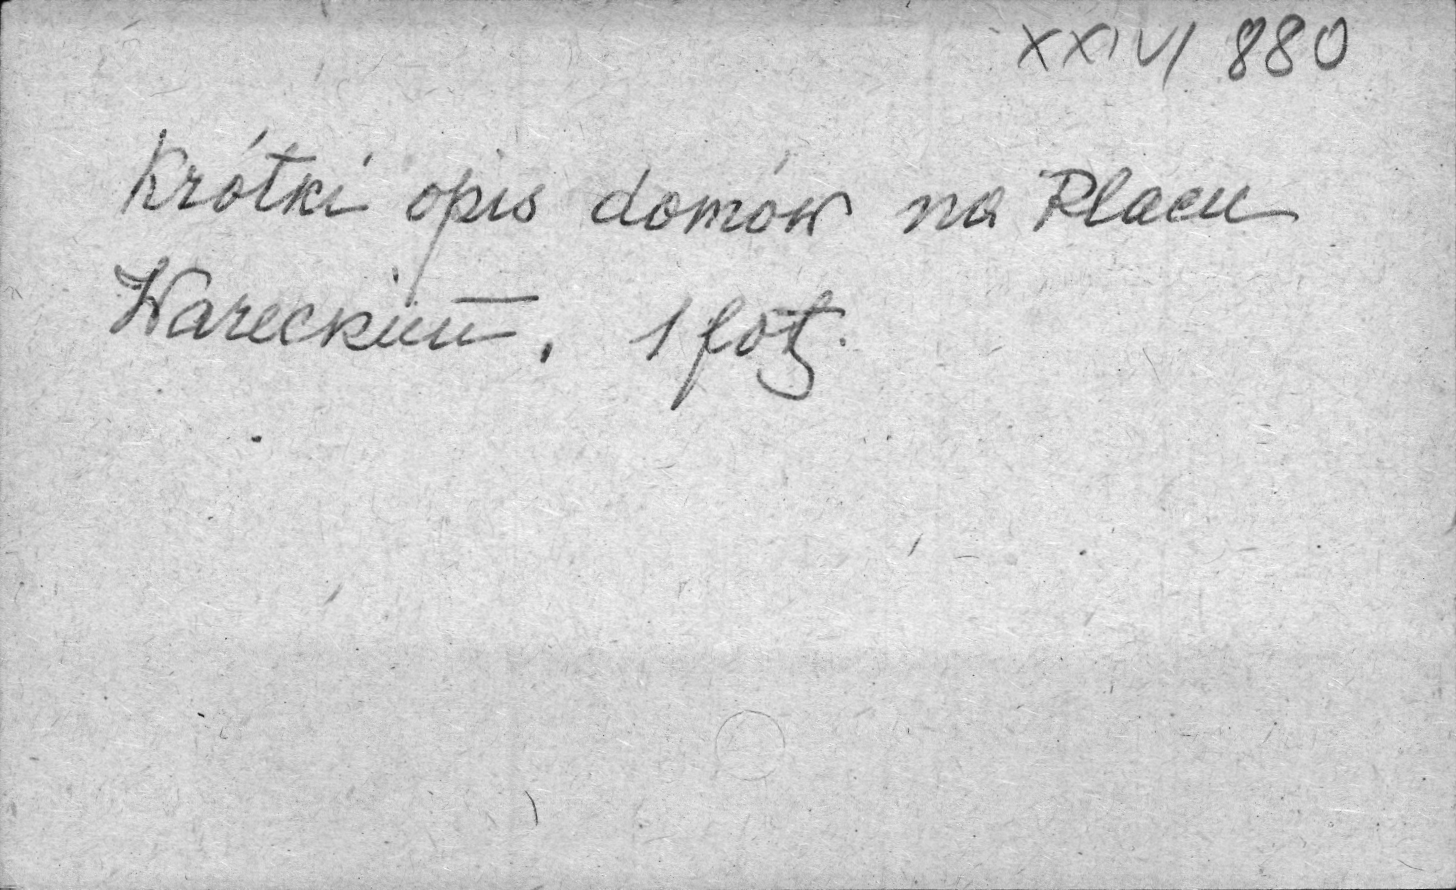 XXIV/880
Krótki opis domów na Placu
Wareckim. 1 fot.